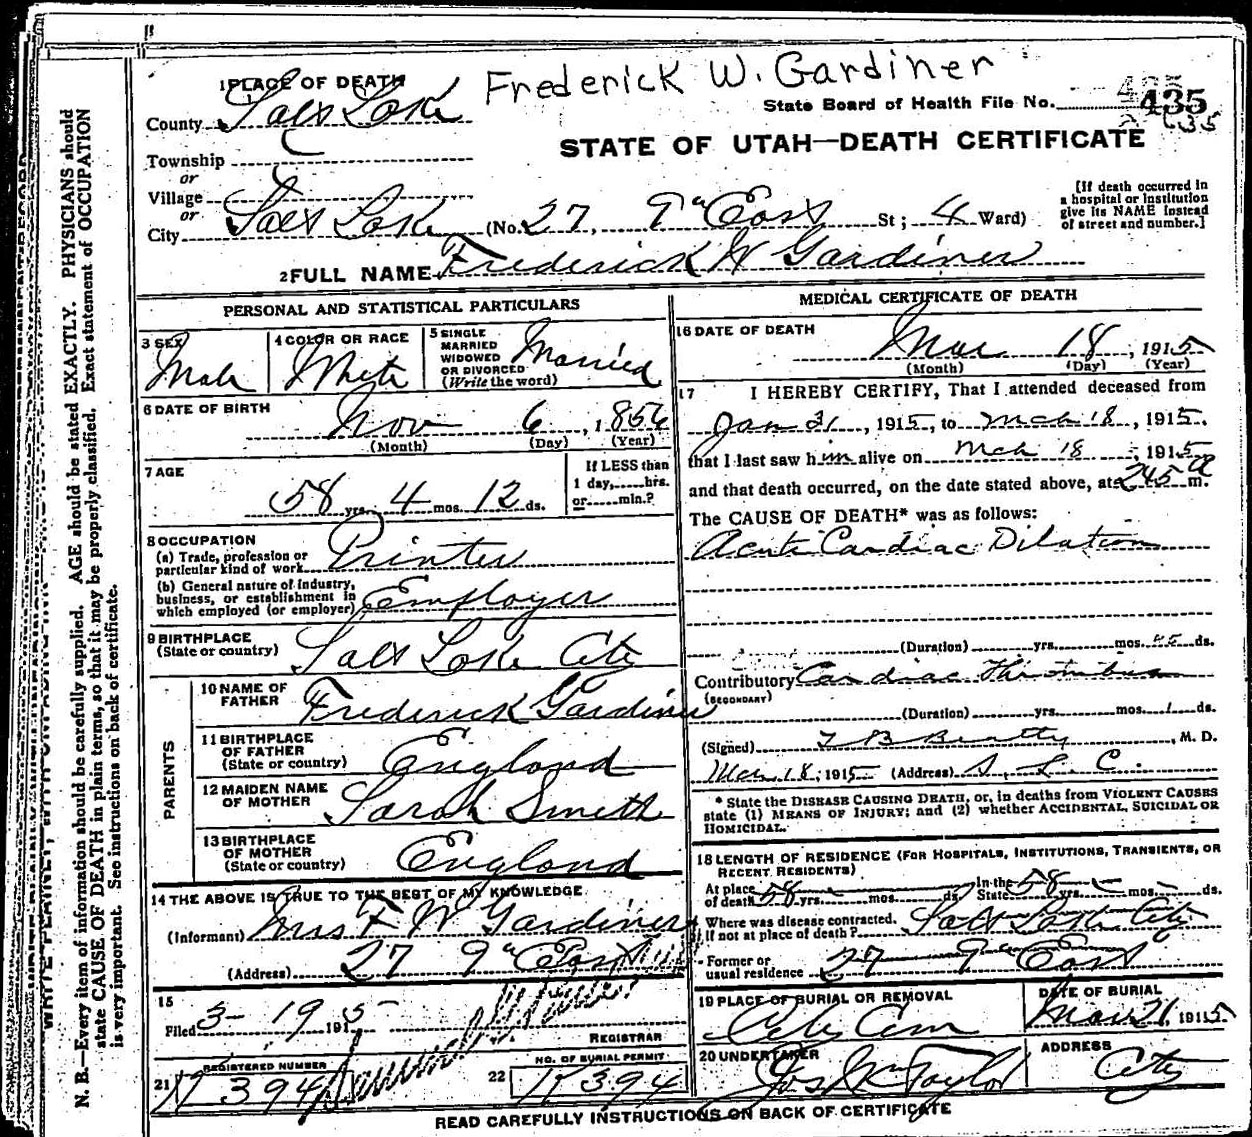 Frederick W. Gardiner
1 PLACE OF DEATH
State Board of Health File No. 435
County Salt Lake
STATE OF UTAH—DEATH CERTIFICATE
Township
or
Village
or
City Salt Lake (No. 27, 9th East St; 4 Ward)
[If death occurred in
a hospital or institution
give its NAME instead
of street and number.]
2 FULL NAME Frederick W Gardiner
PERSONAL AND STATISTICAL PARTICULARS
3 SEX
Male
4 COLOR OR RACE
White
5 SINGLE
MARRIED
WIDOWED
OR DIVORCED
(Write the word)
Married
6 DATE OF BIRTH
Nov 6, 1856
(Month) (Day) (Year)
7 AGE
58 yrs. 4 mos. 12 ds.
If LESS than
1 day,......hrs.
or......min.?
8 OCCUPATION
(a) Trade, profession or
particular kind of work Printer
(b) General nature of industry,
business, or establishment in
which employed (or employer) Employer
9 BIRTHPLACE
(State or country) Salt Lake City
PARENTS
10 NAME OF
FATHER Frederick Gardiner
11 BIRTHPLACE
OF FATHER
(State or country) England
12 MAIDEN NAME
OF MOTHER Sarah Smith
13 BIRTHPLACE
OF MOTHER
(State or country) England
14 THE ABOVE IS TRUE TO THE BEST OF MY KNOWLEDGE
(Informant) Mrs F W Gardiner
(Address) 27 9th East
15
Filed 3-19 1915
REGISTRAR
21 REGISTERED NUMBER
K 394
22 NO. OF BURIAL PERMIT
K 394
MEDICAL CERTIFICATE OF DEATH
16 DATE OF DEATH
Mar 18, 1915
(Month) (Day) (Year)
17 I HEREBY CERTIFY, That I attended deceased from
Jan 31, 1915, to Mch 18, 1915.
that I last saw him alive on Mch 18, 1915
and that death occurred, on the date stated above, at 245 a m.
The CAUSE OF DEATH* was as follows:
Acute Cardiac Dilation
(Duration) yrs. mos. 45 ds.
Contributory Cardiac Thrombus
(SECONDARY)
(Duration) yrs. mos. 1 ds.
(Signed) T B Beatty, M. D.
Mar 18, 1915 (Address) S. L. C.
* State the DISEASE CAUSING DEATH, or, in deaths from VIOLENT CAUSES
state (1) MEANS OF INJURY; and (2) whether ACCIDENTAL, SUICIDAL OR
HOMICIDAL.
18 LENGTH OF RESIDENCE (FOR HOSPITALS, INSTITUTIONS, TRANSIENTS, OR
RECENT RESIDENTS)
At place
of death 58 yrs. mos. ds.
In the
State 58 yrs. mos. ds.
Where was disease contracted.
If not at place of death? Salt Lake City
Former or
usual residence 27 9th East
19 PLACE OF BURIAL OR REMOVAL
City Cem
DATE OF BURIAL
Mar 21, 1915.
20 UNDERTAKER
Jos Wm Taylor
ADDRESS
City
READ CAREFULLY INSTRUCTIONS ON BACK OF CERTIFICATE
N. B.—Every item of information should be carefully supplied. AGE should be stated EXACTLY. PHYSICIANS should
state CAUSE OF DEATH in plain terms, so that it may be properly classified. Exact statement of OCCUPATION
is very important. See instructions on back of certificate.